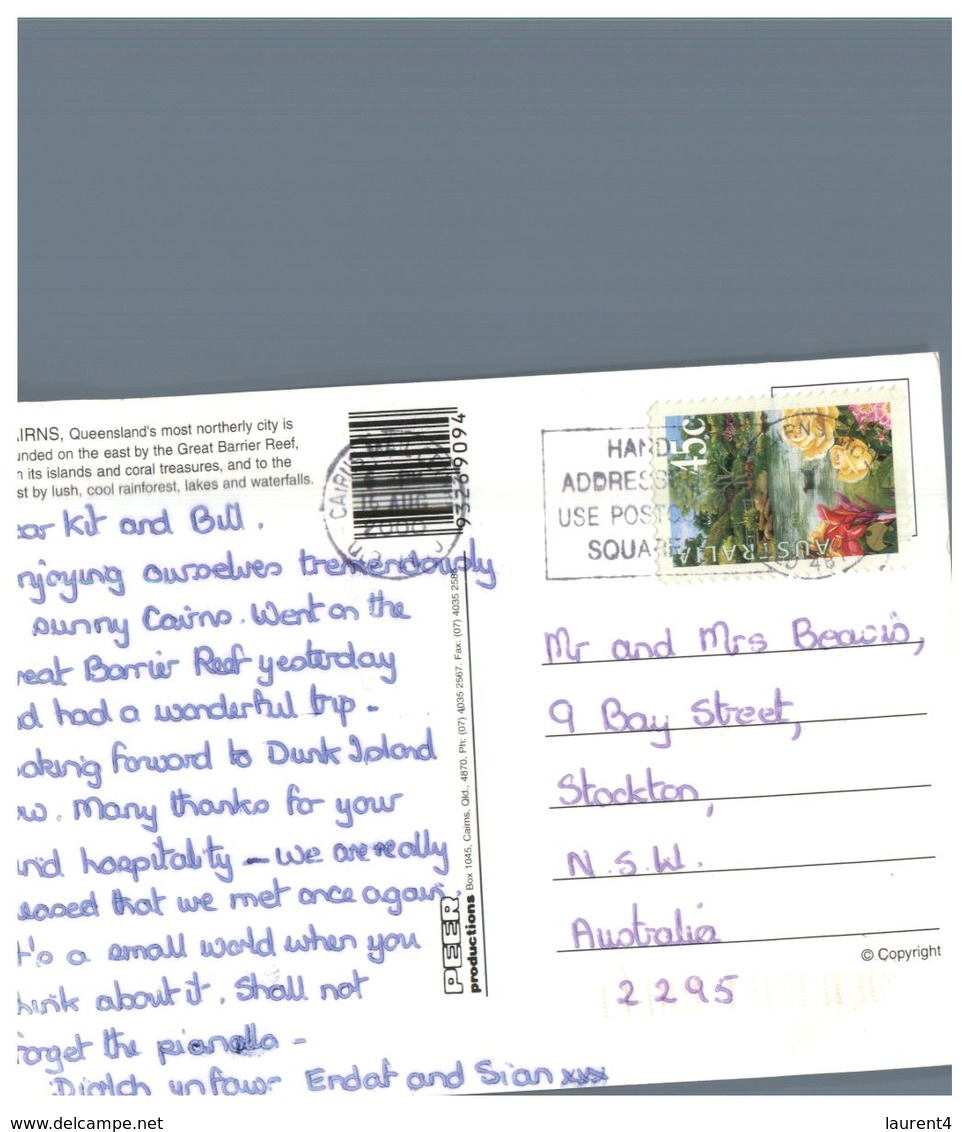 AIRNS, Queensland's most northerly city is
unded on the east by the Great Barrier Reef,
n its islands and coral treasures, and to the
st by lush, cool rainforest, lakes and waterfalls.
ear Kit and Bill.
njoying ourselves tremendously
sunny Cairns. Went on the
reat Barrier Reef yesterday
nd had a wonderful trip -
ooking forward to Dunk Island
ow. Many thanks for your
ind hospitality - we are really
eased that we met once again.
t's a small world when you
hink about it. Shall not
forget the pianola -
Diolch yn fawr Endaf and Sian xxx
93269094
CAIRNS
16 AUG
2000
PEER
productions Box 1045, Cairns, Qld., 4870. Ph: (07) 4035 2567. Fax: (07) 4035 2588
HAND
ADDRESS
USE POST
SQUA
45c
AUSTRALIA
Mr and Mrs Beavis,
9 Bay Street,
Stockton,
N.S.W.
Australia
2295
© Copyright
www.delcampe.net
laurent4